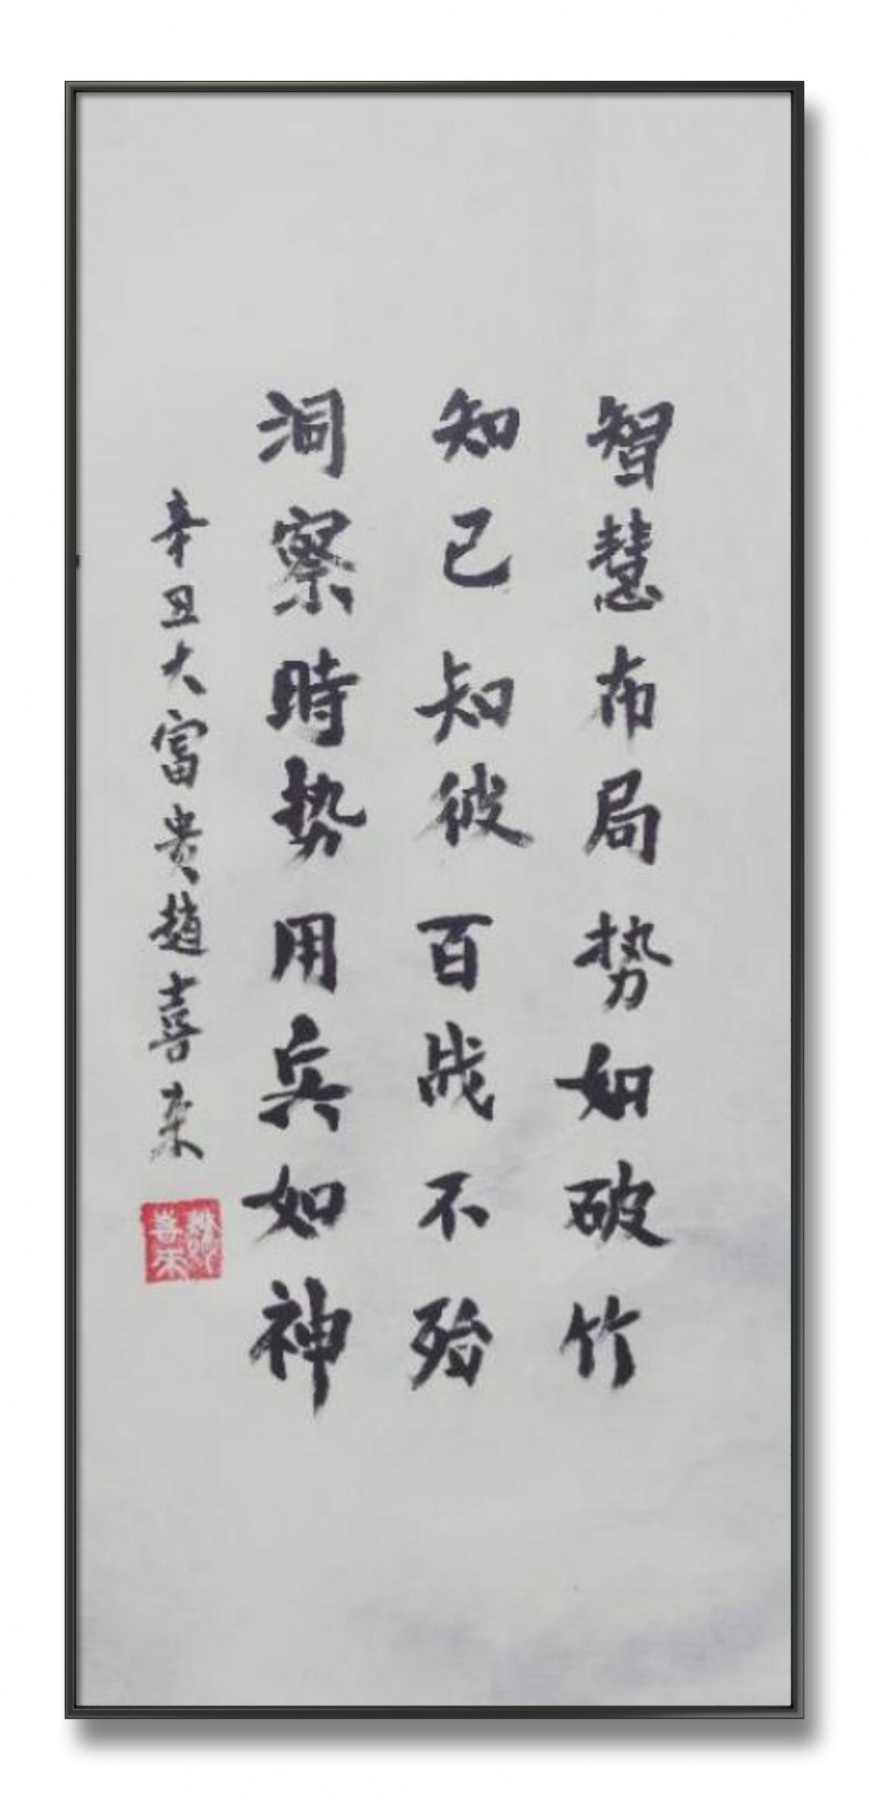 智慧布局势如破竹
知己知彼百战不殆
洞察時势用兵如神
辛丑大富贵趙喜来
喜来